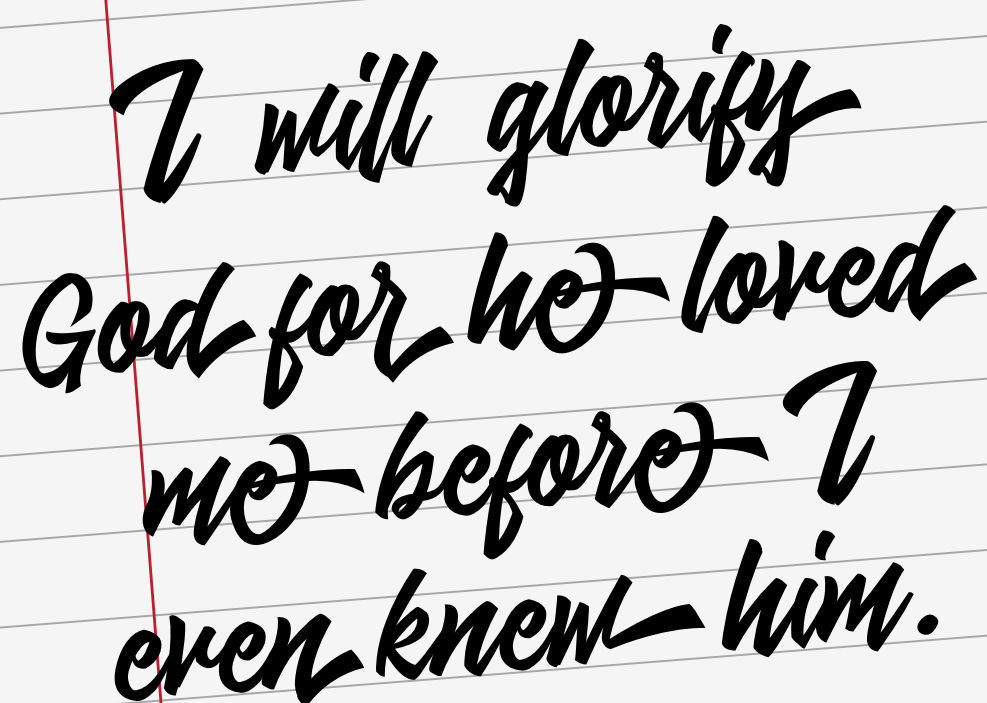 I will glorify
God for he loved
me before I
even knew him.